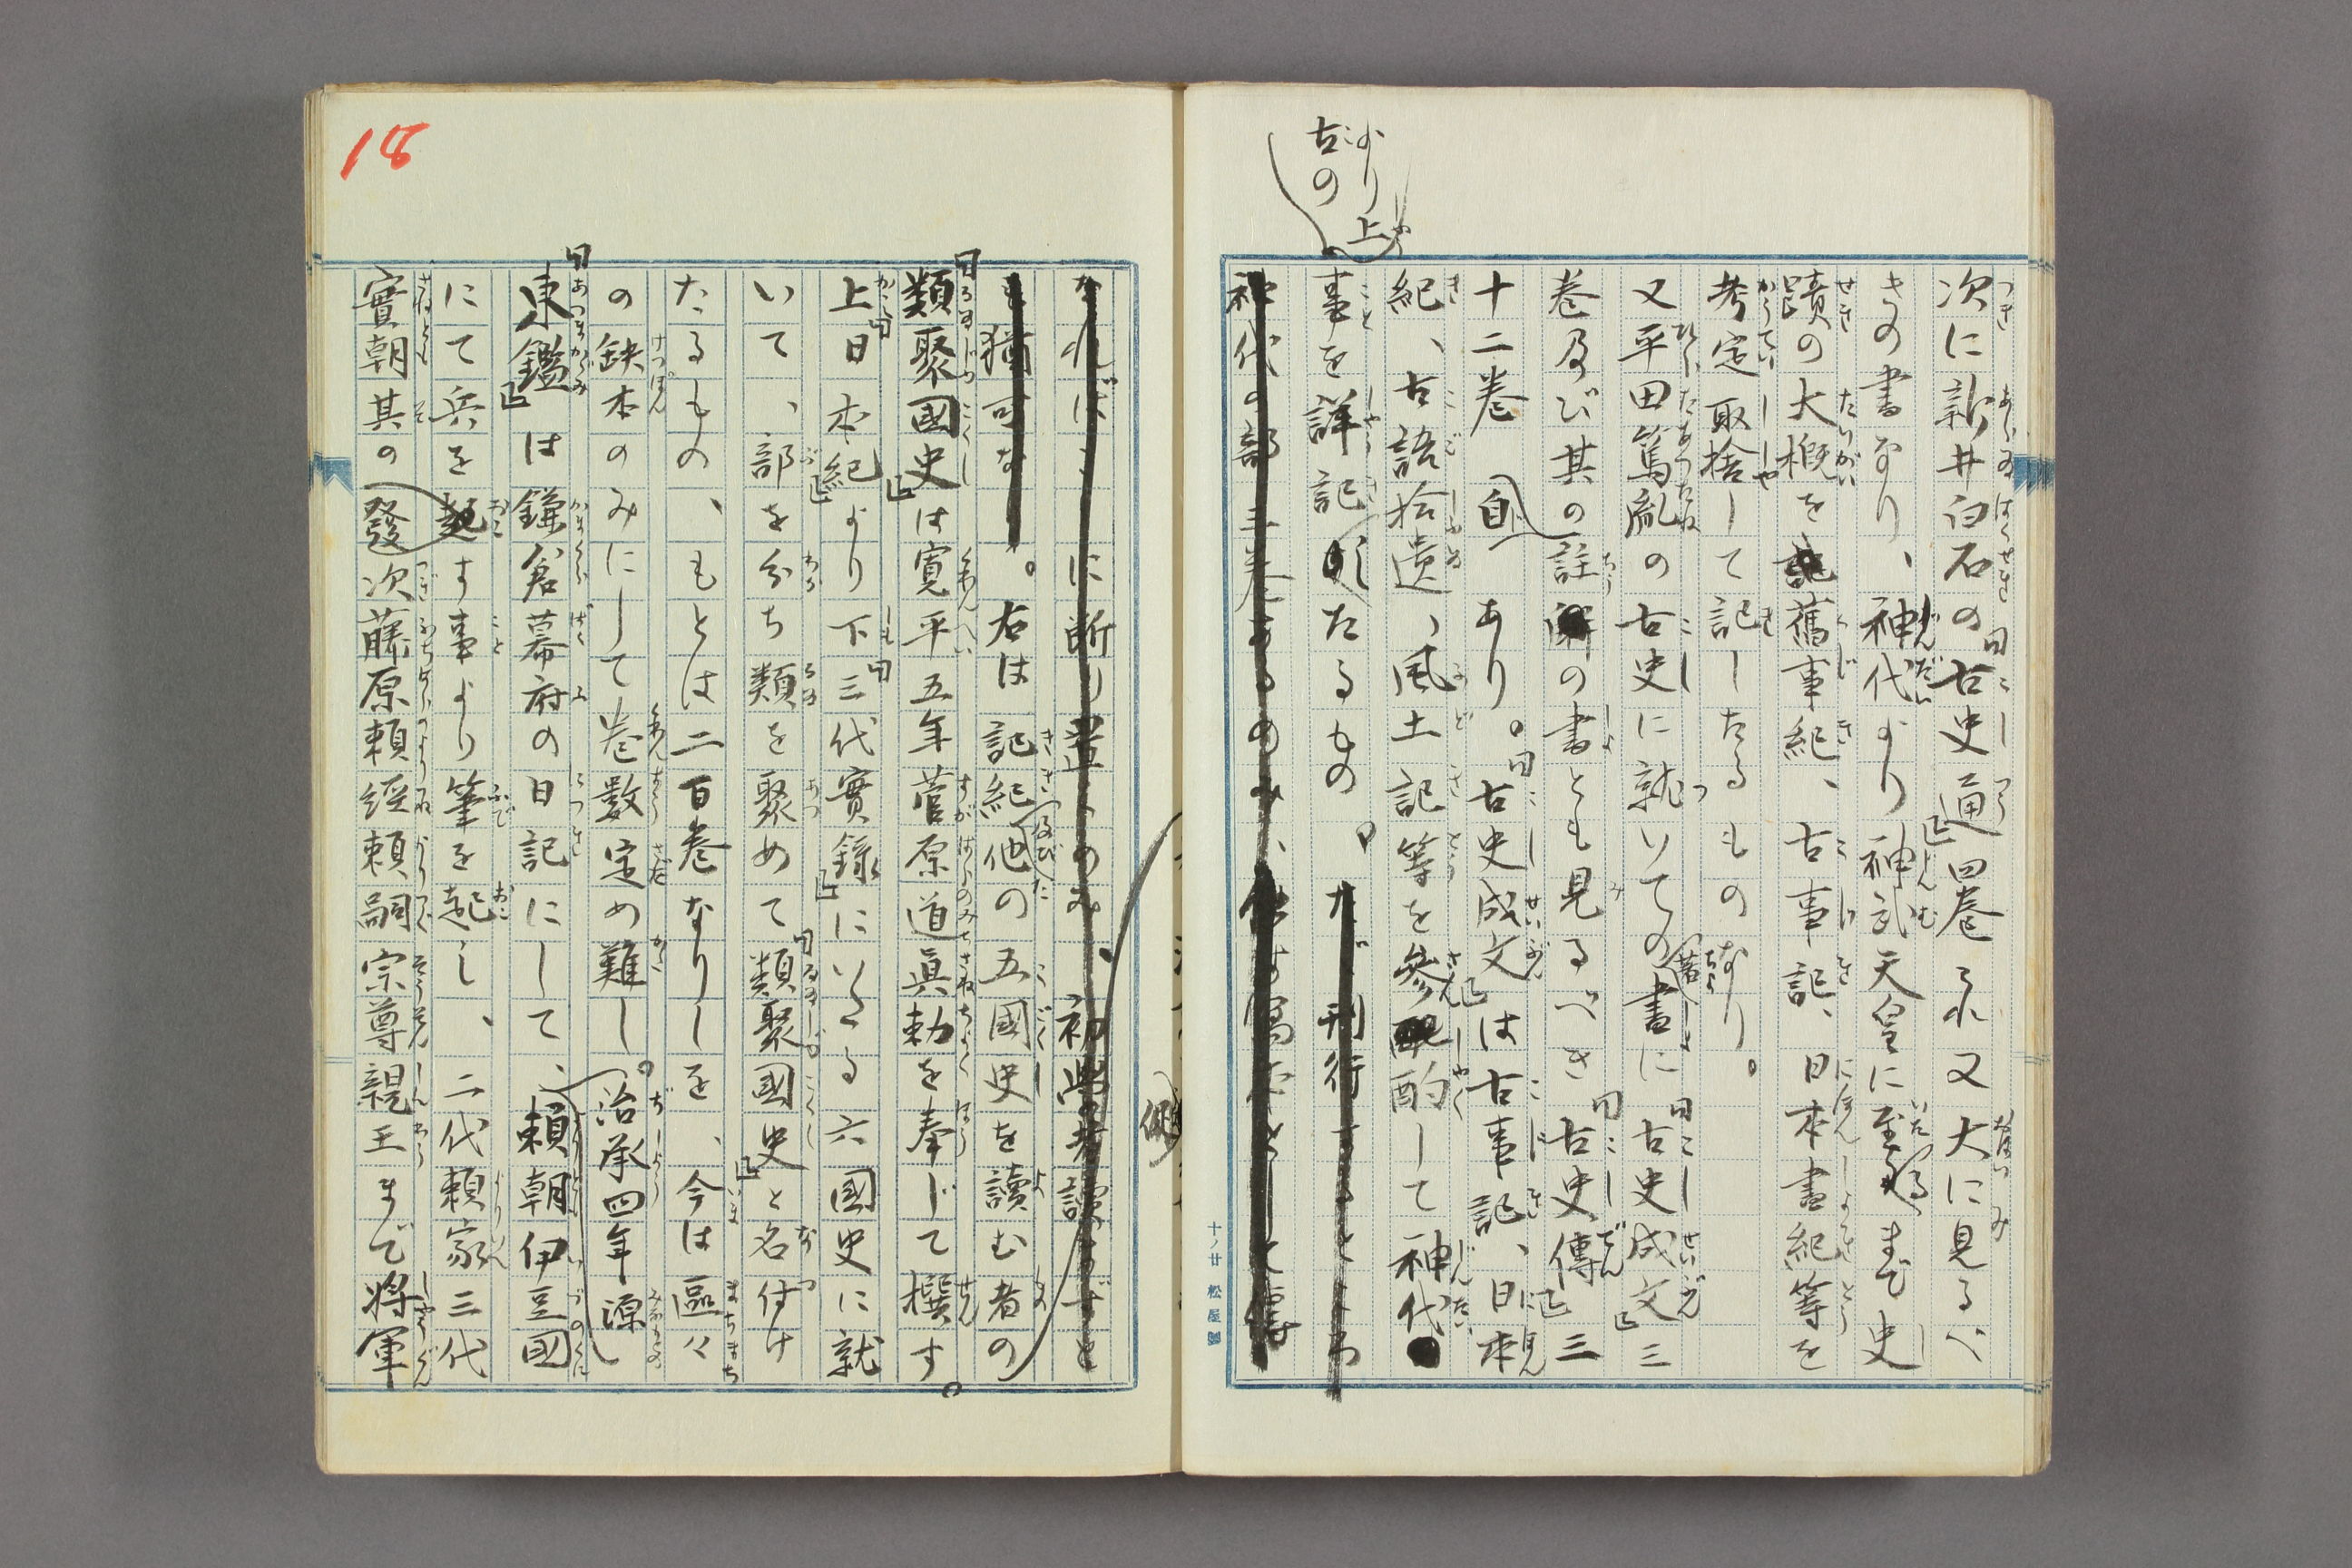 次に新井白石の「古史通」四巻これ又大に見るべ
きの書なり、神代より神武天皇に至るまで史
蹟の大概を舊事紀、古事記、日本書紀等を
考定取捨して記したるものなり。
又平田篤胤の古史に就いての著書に「古史成文」三
巻及び其の註の書とも見るべき「古史傳」三
十二巻あり。「古史成文」は古事記、日本
紀、古語拾遺、風土記等を參酌して神代
より上古の
事を詳記したるもの、たゞ刊行
神代の部三巻あるのみ、
なればこゝに断り置くのみ、初學者讀まずと
も猶可な。右は記紀及び他の五國史を讀む者の
「類聚國史」は寛平五年菅原道眞勅を奉じて撰す。
上「日本紀」より下「三代實錄」にいたる六國史に就
いて、部を分ち類を聚めて「類聚國史」と名付け
たるもの、もとは二百巻なりしを、今は區々
の缺本のみにして巻数定め難し。治承四年源
「東鑑」は鎌倉幕府の日記にして、頼朝伊豆國
にて兵を起す事より筆を起し、二代頼家三代
實朝其の次藤原頼經頼嗣宗尊親王まで将軍
18
十ノ廿 松屋製